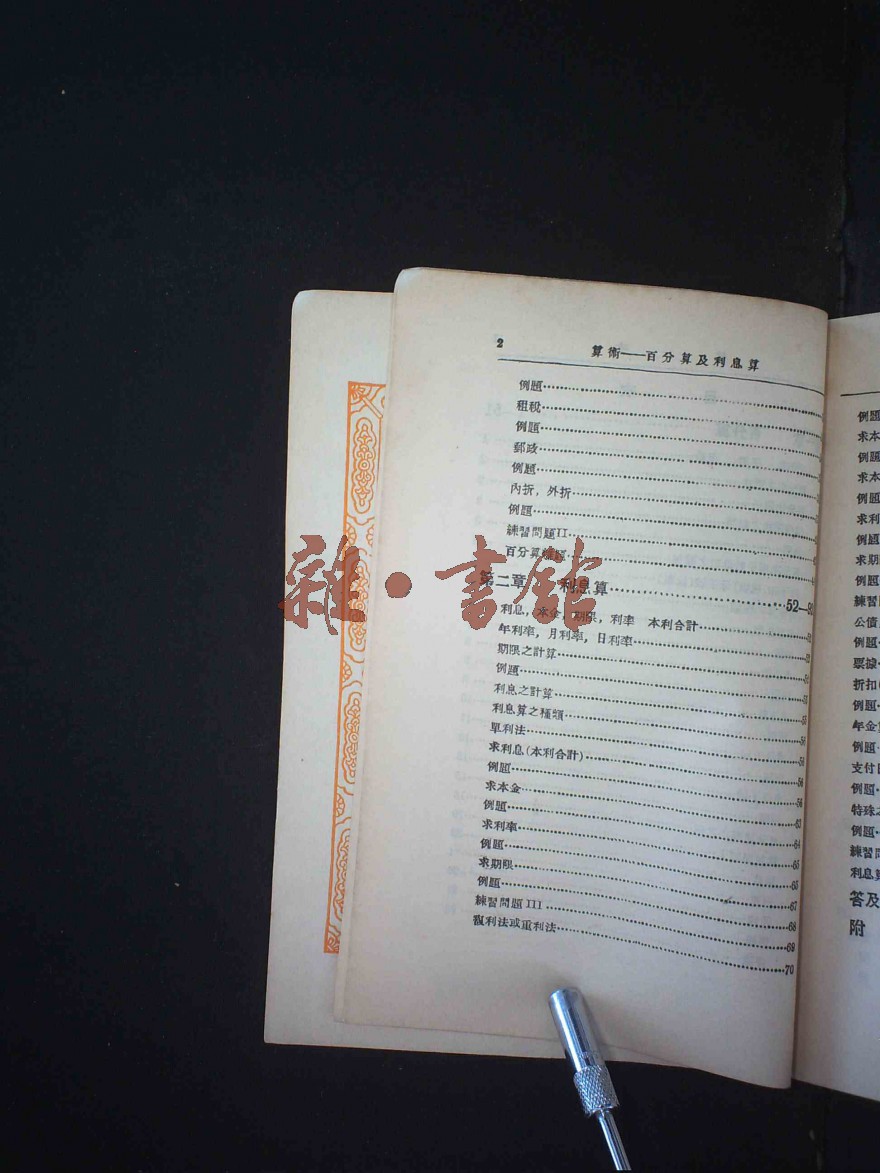 2
算術——百分算及利息算
例題
租稅
例題
郵政
例題
內折，外折
例題
練習問題II
百分算雜題
第二章 利息算 52—
利息，本金，期限，利率 本利合計 51
年利率，月利率，日利率 52
期限之計算
例題
利息之計算
利息算之種類
單利法
求利息(本利合計)
例題 56
求本金 56
例題 63
求利率 64
例題 65
求期限
例題 67
練習問題III 68
複利法或重利法 69
70
例題
求本
例題
求本
例題
求利
例題
求期
例題
練習
公債
例題
票據
折扣
例題
年金
例題
支付
例題
特殊
例題
練習問
利息算
答及
附
雜·書館